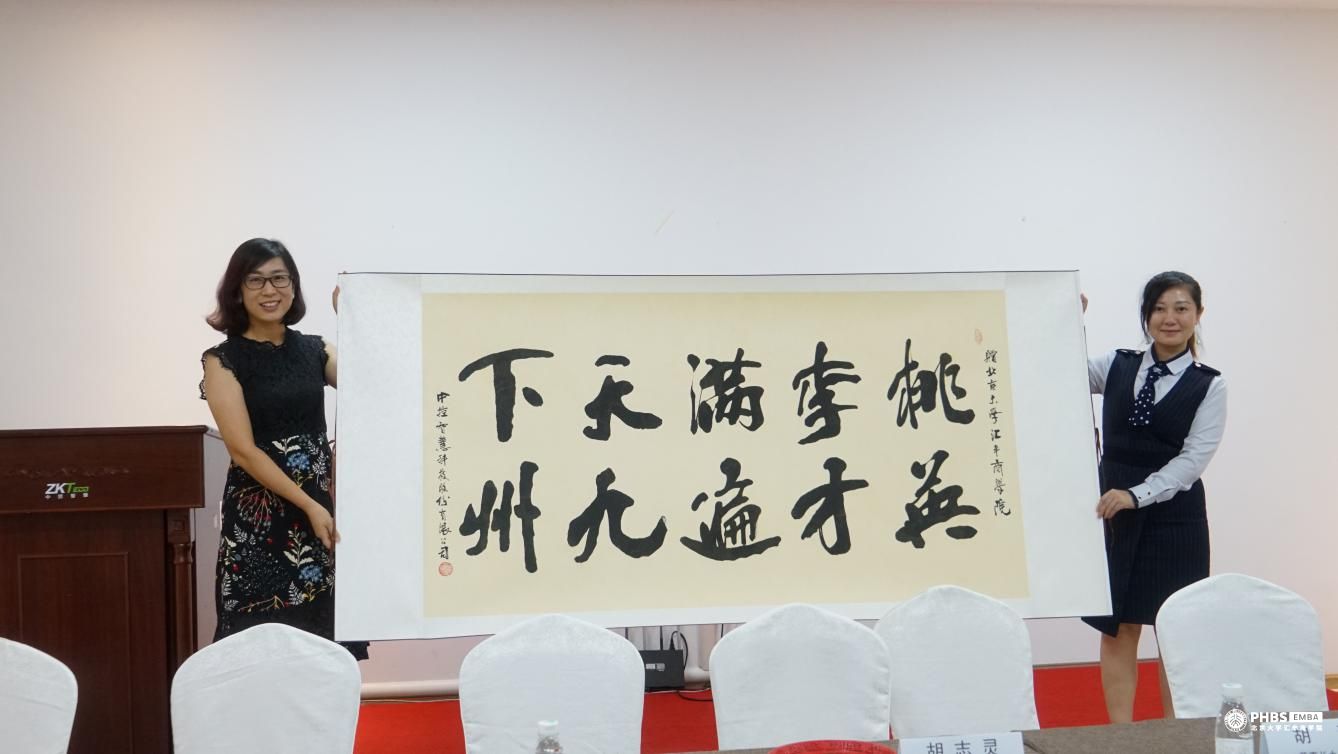 赠北京大学汇丰商学院
桃李满天下
英才遍九州
中控智慧科技股份有限公司
ZKTeco
中控智慧
胡志灵
胡
PHBS EMBA
北京大学汇丰商学院